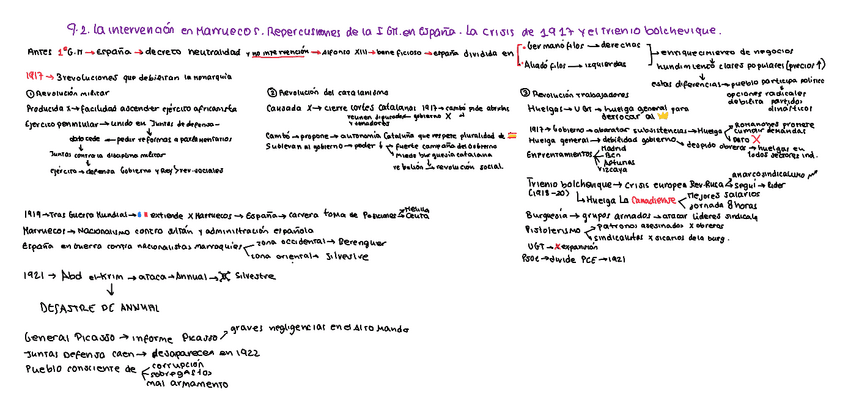 9.2. La intervención en Marruecos. Repercusiones de la I GM. en España. La crisis de 1917 y el trienio bolchevique.
Antes 1ºG.M → España → decreto neutralidad y no intervención X → Alfonso XIII → beneficioso → España dividida en
·Germanófilos → derechas
·Aliadófilos → izquierdas
→ enriquecimiento de negocios
hundimiento clases populares (precios ↑)
estas diferencias → pueblo participa político
opciones radicales
debilita partidos
dinásticos
1917 → 3 revoluciones que debilitan la monarquía
① Revolución militar
Producida X → facilidad ascender ejército africanista
Ejército peninsular → unido en Juntas de defensa
obtocede → pedir reformas a parlamentarios
Juntas contra la disciplina militar
ejército → defensa Gobierno y Rey > rev. sociales
② Revolución del catalanismo
Causada X → cierre cortes catalanas 1917 → Cambó pide abrirlas
reunen diputados y senadores gobierno X
Cambó → propone → autonomía Cataluña que respete pluralidad de
Sublevan al gobierno → poder ↓
fuerte campaña del Gobierno
Miedo burguesía catalana
rebelión → revolución social
③ Revolución trabajadores
Huelgas → UGT → huelga general para
derrocar al
1917 → Gobierno → abaratar subsistencias → Huelga
Romanones promete
cumplir demandas
Dato X
Huelga general → debilidad gobierno → despido obreros → huelgas en
todos sectores ind.
Enfrentamientos
Madrid
Bcn
Asturias
Vizcaya
Trienio bolchevique → Crisis europea Rev. Rusa
(1918-20)
anarcosindicalismo
Seguí → líder
Huelga La Canadiense
Mejores salarios
Jornada 8 horas
Burguesía → grupos armados → atacar líderes sindicale
Pistolerismo
Patronos asesinados x obreros
sindicalistas x sicarios de la burg.
UGT → X expansión
PSOE → divide PCE → 1921
1919 → Tras Guerra Mundial → extiende x Marruecos → España → carrera toma de Posiciones
Melilla
Ceuta
Marruecos → Nacionalismo contra sultán y administración española
España en guerra contra nacionalistas marroquíes
zona occidental → Berenguer
zona oriental → Silvestre
1921 → Abd el-Krim → ataca → Annual → Silvestre
DESASTRE DE ANNUAL
General Picasso → informe Picasso
graves negligencias en el Alto Mando
Juntas Defensa caen → desaparecen en 1922
Pueblo consciente de
corrupción
sobregastos
mal armamento